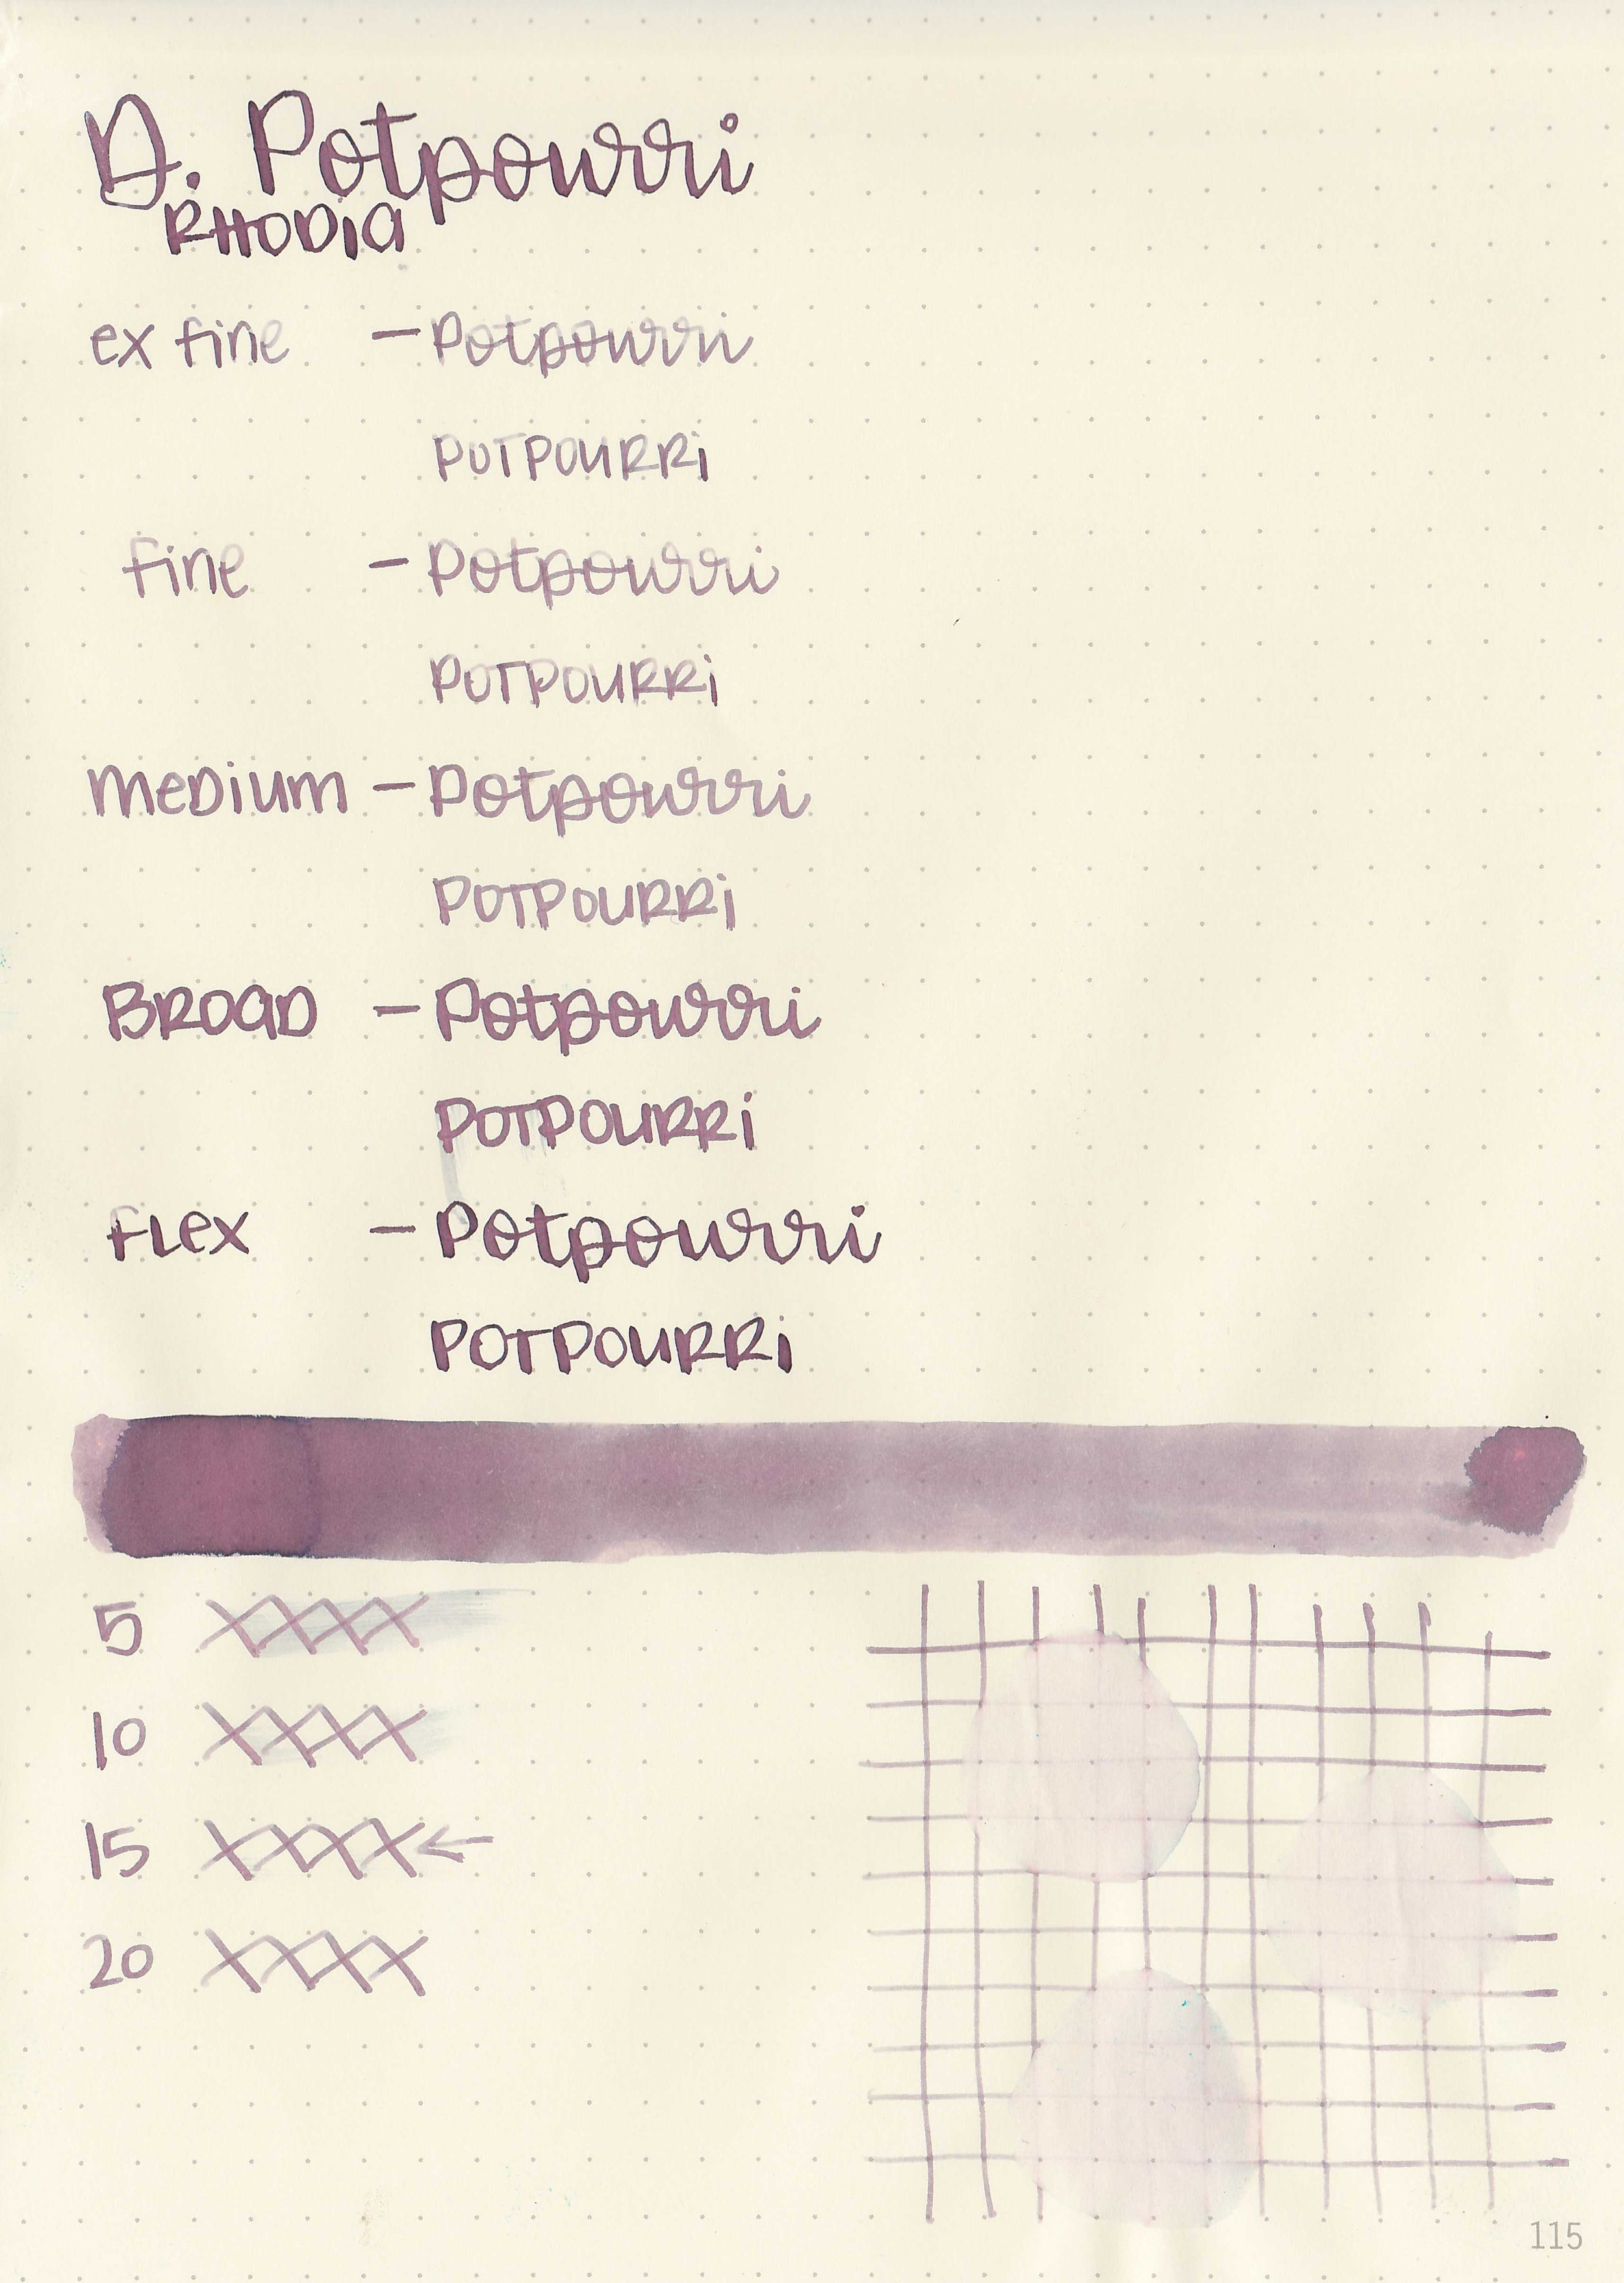 D. Potpourri
RHODIA
ex fine – Potpourri
POTPOURRi
fine – Potpourri
POTPOURRi
meDium – Potpourri
POTPOURRi
BROAD – Potpourri
POTPOURRi
FLex – Potpourri
POTPOURRi
5 XXXX
10 XXXX
15 XXXX ←
20 XXXX
115